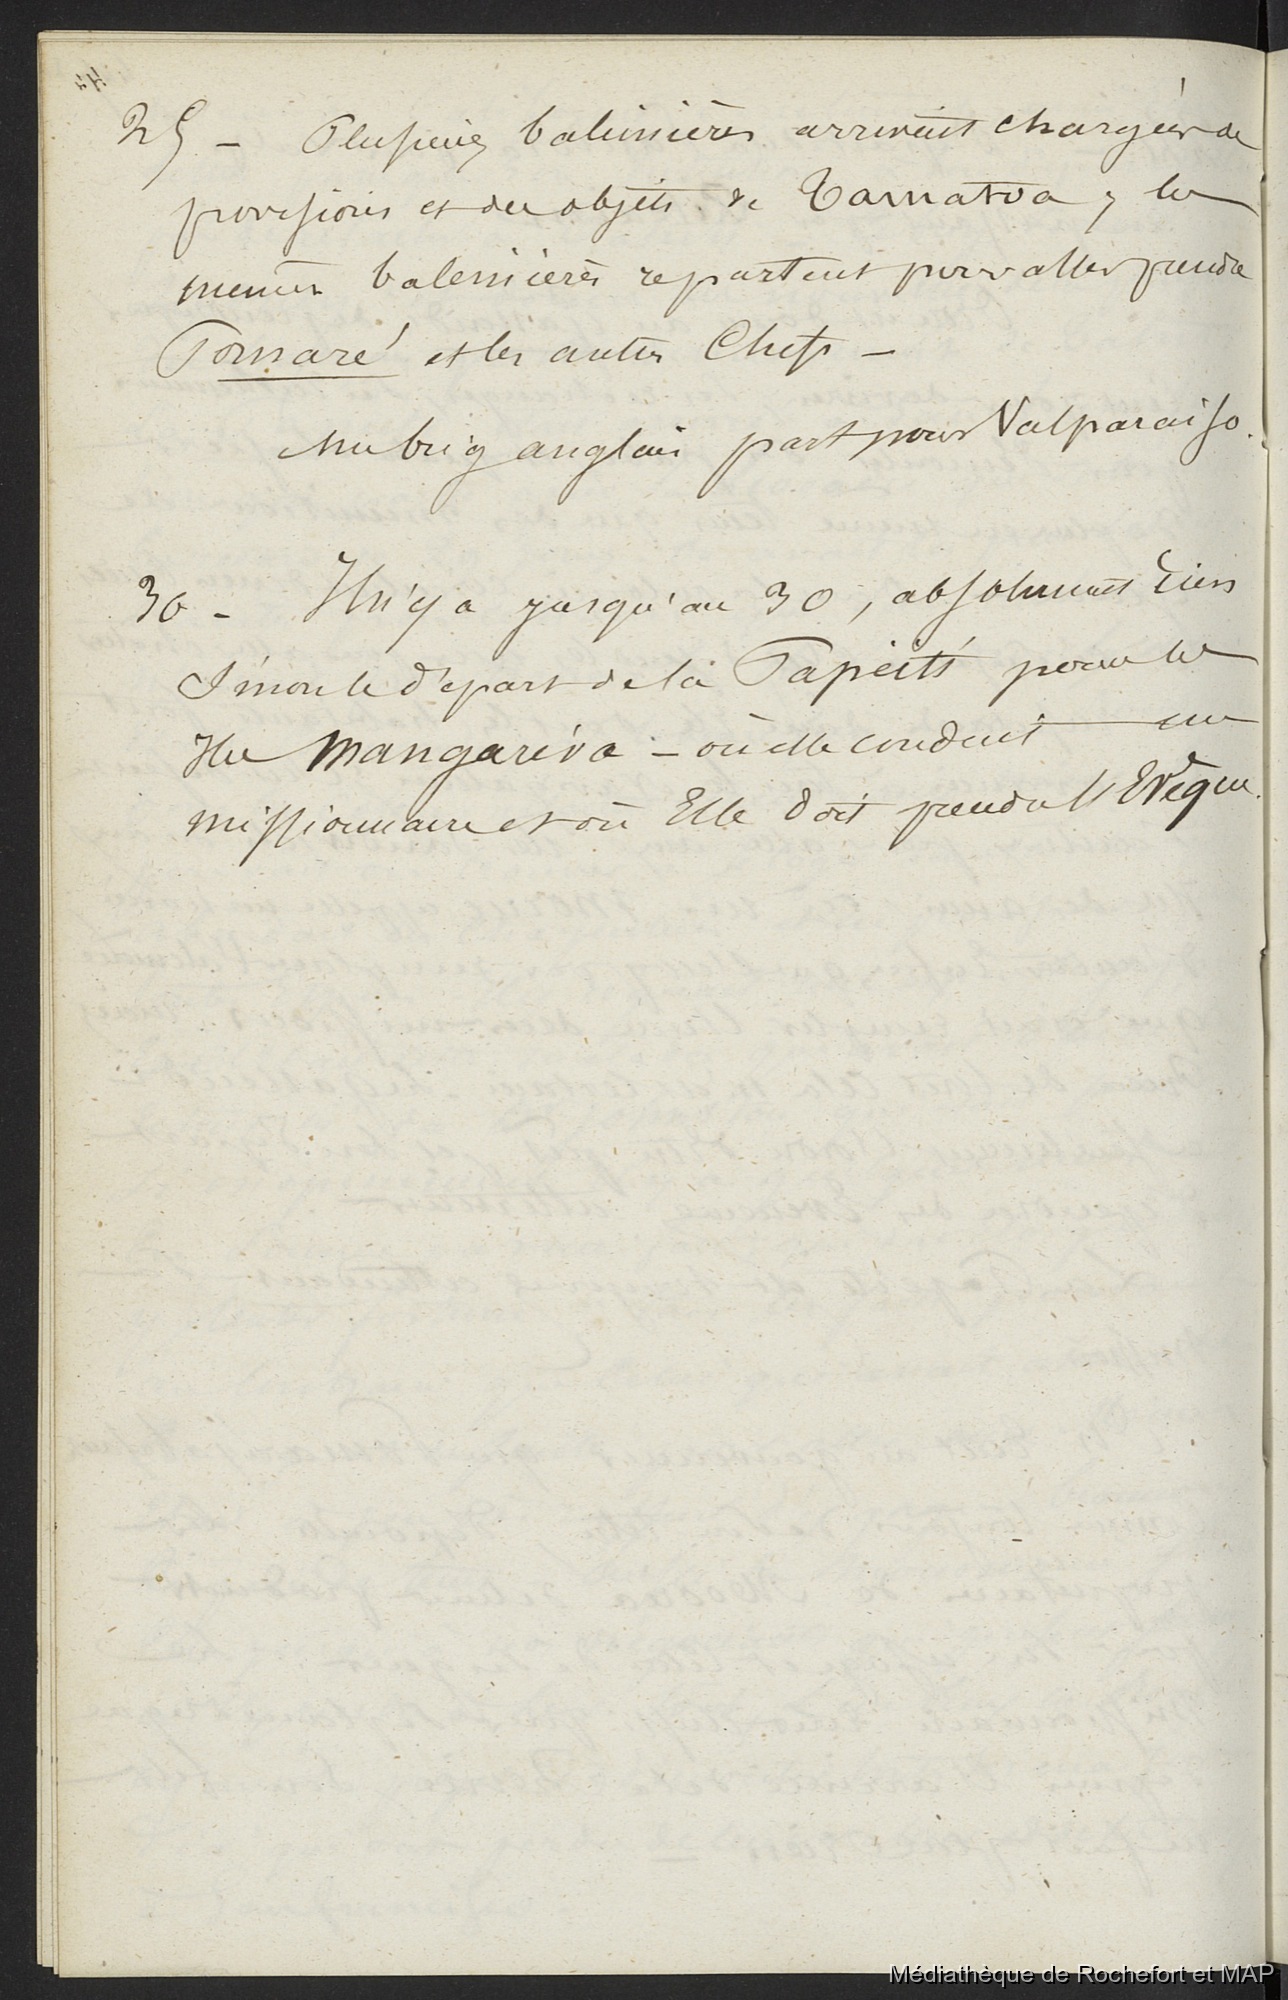 25 - Plusieurs baleinières arrivent chargées de
provisions et des objets de Tamatoa, les
mêmes baleinières repartent pour aller prendre
Pomaré et les autres Chefs -
Un brig anglais part pour Valparaiso.
30 - Il n'y a jusqu'au 30, absolument rien
Sinon le départ de la Papeïti pour les
Iles Mangaréva - où elle conduit un
missionnaire et où Elle doit prendre l'Evêque.
Médiathèque de Rochefort et MAP